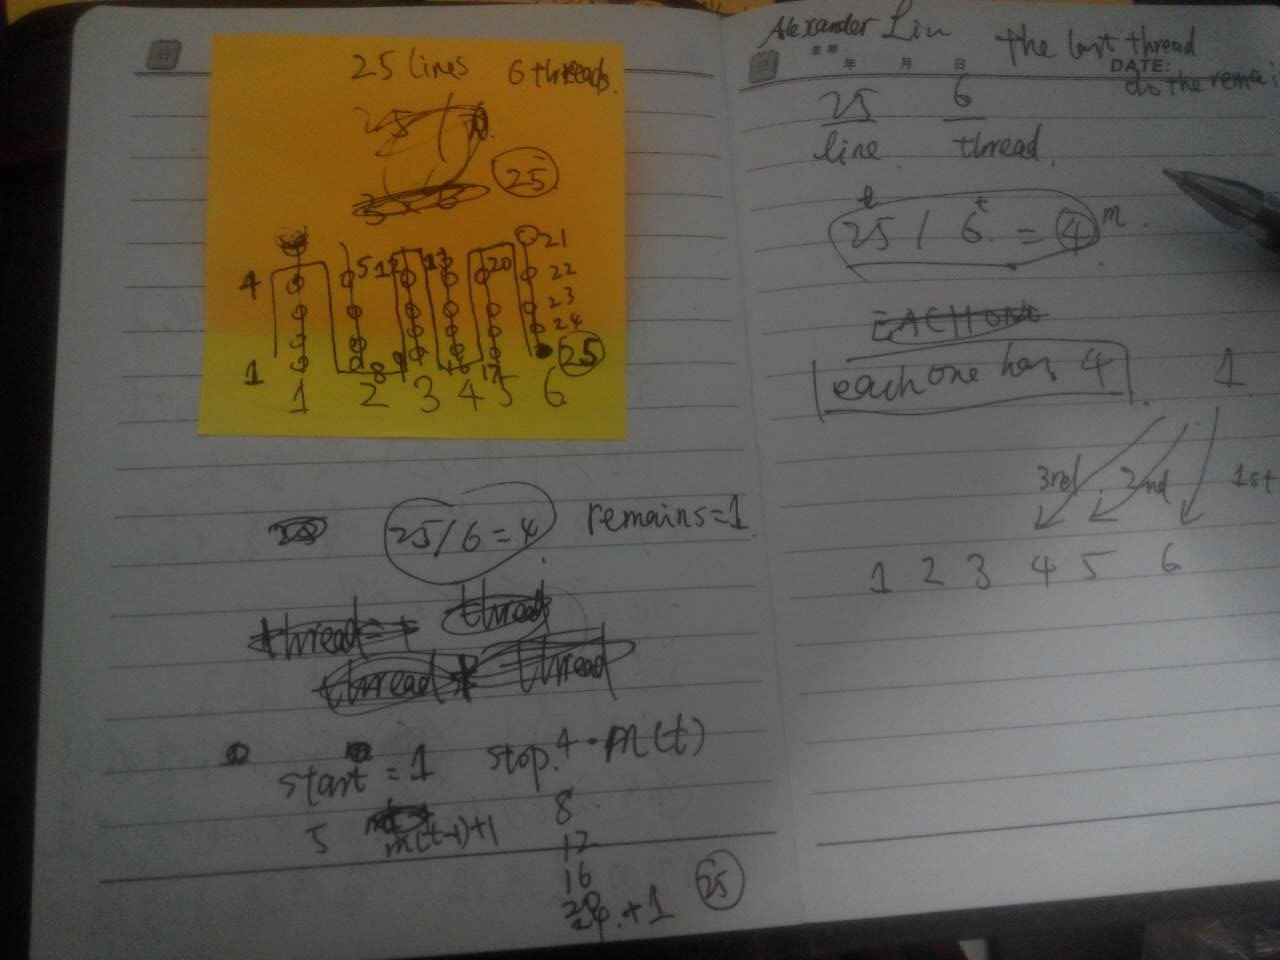 25 lines 6 threads.
25 /
25
21
4 5 12 13 20 22
23
24
1 8 9 16 17 25
1 2 3 4 5 6
25/6=4 remains=1
thread
thread
thread
start = 1 stop. 4 · m(t)
5 m(t-1)+1 8
12
16
24 +1 25
Alexander Liu the last thread
年 月 日 DATE:
do the remai
25 6
line. thread.
l t
25 / 6 = 4 m
EACH ONE
each one has 4 1
3rd 2nd 1st
1 2 3 4 5 6